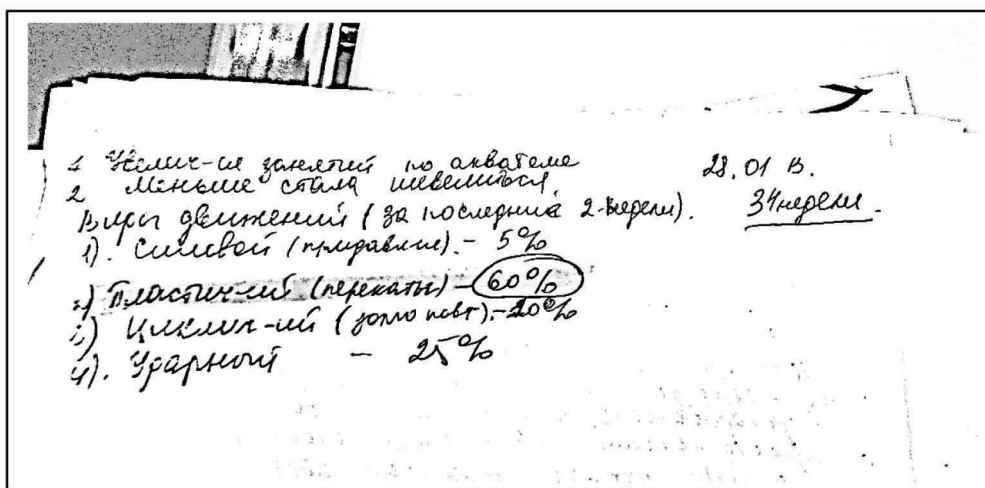 1 занятий по акватеме
28.01 В.
2 Меньше стала шевелиться.
34 недели.
Виды движений (за последние 2-недели).
1). Силовой (придавлив). - 5%
2) Пластич-ий (перекаты) - 60%
3) Циклич-ий (долго повт). - 10%
4). Ударный - 25%